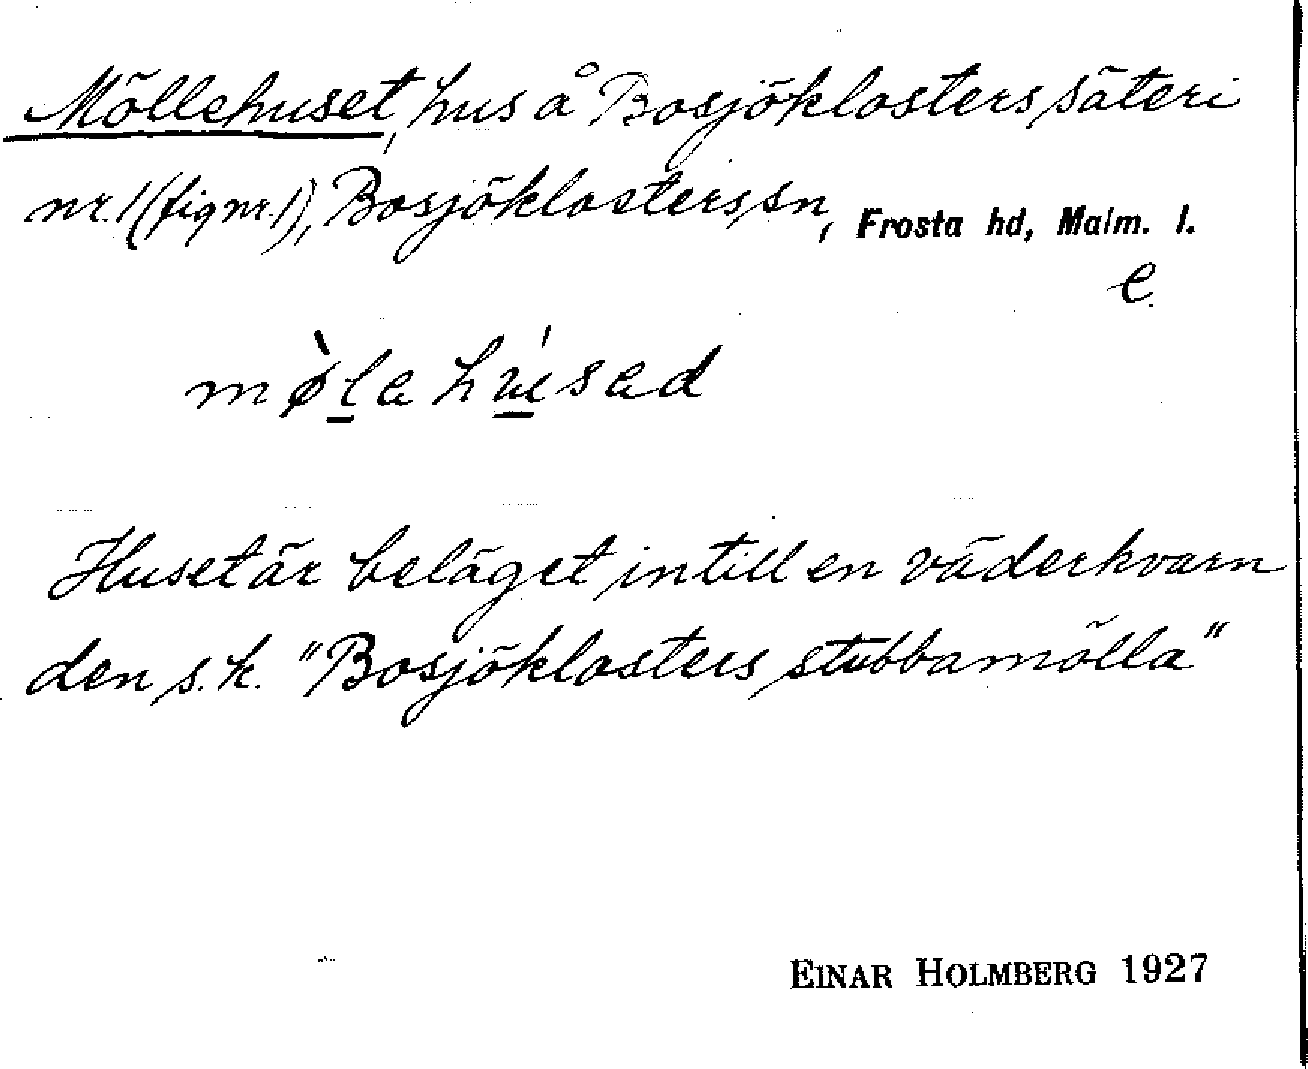 Möllehuset, hus å Bosjöklosters säteri
nr. 1 (fig nr. 1), Bosjöklosters sn, Frosta hd, Malm. l.
e.
Huset är beläget intill en väderkvarn
den s.k. "Bosjöklosters stubbamölla"
EINAR HOLMBERG 1927